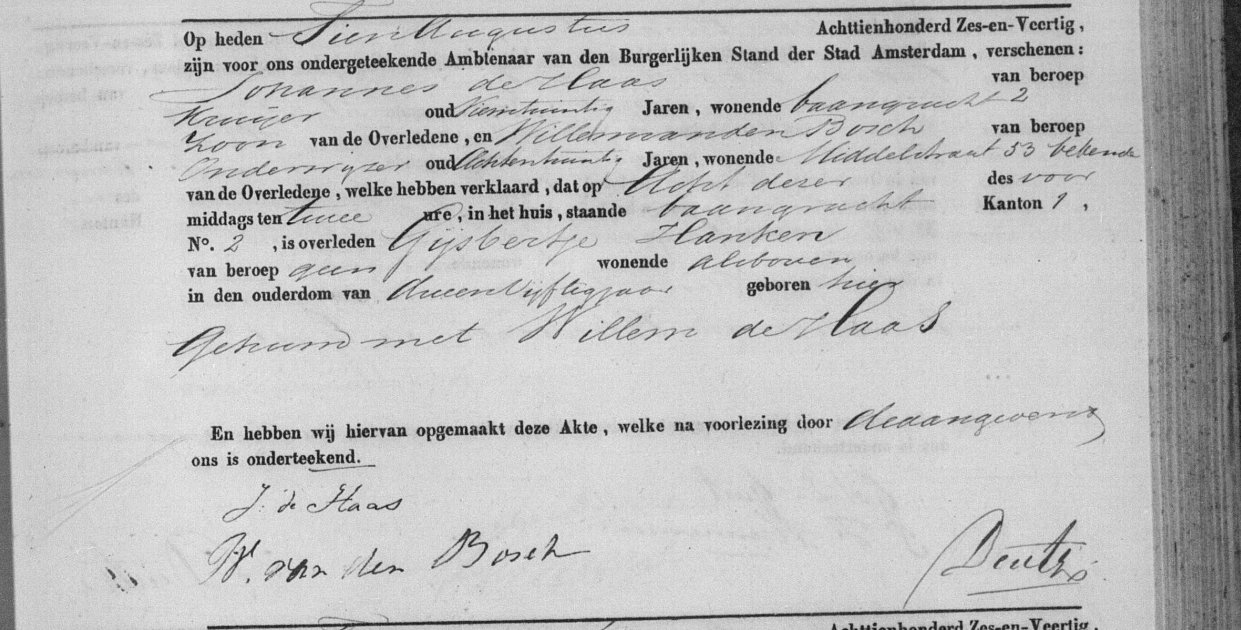 Op heden Tien Augustus Achttienhonderd Zes-en-Veertig,
zijn voor ons ondergeteekende Ambtenaar van den Burgerlijken Stand der Stad Amsterdam, verschenen:
Johannes de Haas van beroep
Kruijer oud Vierentwintig Jaren, wonende baangracht 2
Zoon van de Overledene, en Willem van den Bosch van beroep
Onderwijzer oud Achtentwintig Jaren, wonende Middelstraat 53 bekende
van de Overledene, welke hebben verklaard, dat op Acht dezer des voor
middags ten twee ure, in het huis, staande baangracht Kanton 1,
No. 2, is overleden Gijsbertje Hanken
van beroep geen wonende alsboven
in den ouderdom van tweeenVijftig jaar geboren hier
Gehuwd met Willem de Haas
En hebben wij hiervan opgemaakt deze Akte, welke na voorlezing door de aangevers
ons is onderteekend.
J: de Haas
W. van den Bosch
Achttienhonderd Zes-en-Veertig,